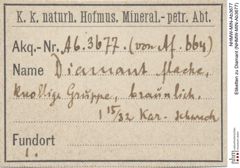 K. k. naturh. Hofmus. Mineral.-petr. Abt.
Akq.-Nr. A6.3677. (von Af. 664)
Name Diamant flache,
knollige Gruppe, bräunlich.
1 15/32 Kar. schwach
Fundort
1.
NHMW-MIN-Ab3677
Etiketten zu Diamant (NHMW-MIN-Ab3677)
nhm